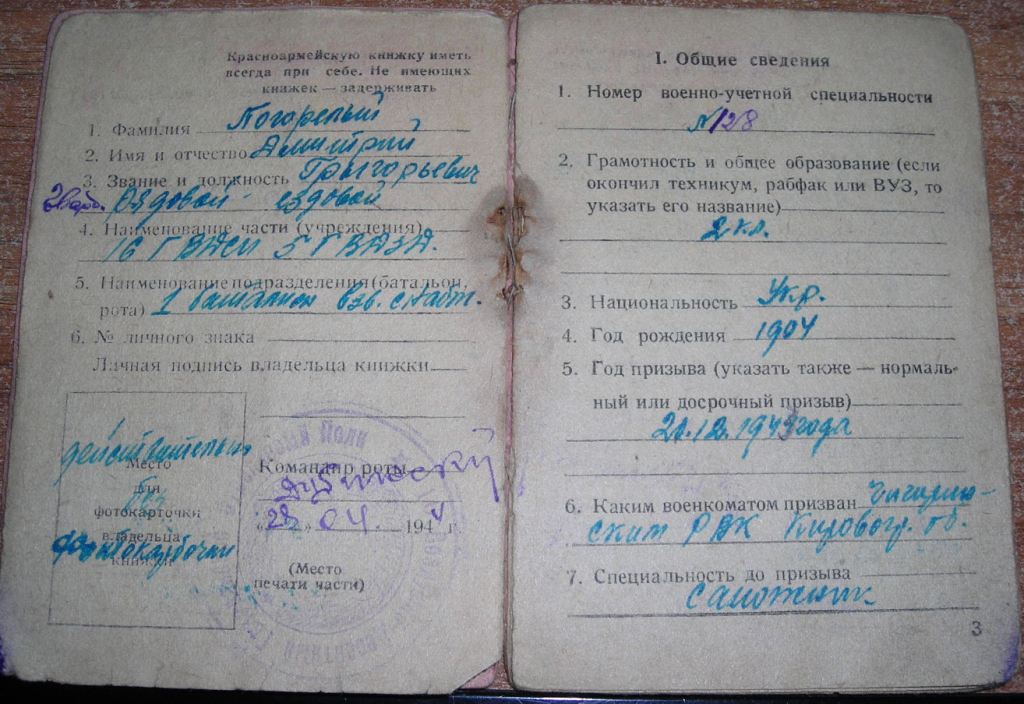 Красноармейскую книжку иметь
всегда при себе. Не имеющих
книжек — задерживать
1. Фамилия Погорелый
2. Имя и отчество Дмитрий
Григорьевич
3. Звание и должность
Гвард. Ездовой - ездовой
4. Наименование части (учреждения)
16 ГВДСП 5 ГВДЗД.
5. Наименование подразделения (батальон,
рота) 1 батальон взв.
6. № личного знака
Личная подпись владельца книжки
действительно
Место
для
без
фотокарточки
владельца
фотокарточки
книжки
Командир роты
«28» 04. 1944 г.
(Место
печати части)
I. Общие сведения
1. Номер военно-учетной специальности
№128
2. Грамотность и общее образование (если
окончил техникум, рабфак или ВУЗ, то
указать его название)
2 кл.
3. Национальность Укр.
4. Год рождения 1904
5. Год призыва (указать также — нормаль-
ный или досрочный призыв)
20.12.1943 года
6. Каким военкоматом призван Чигирин-
ским РВК Кировогр. об.
7. Специальность до призыва
сапожник
3